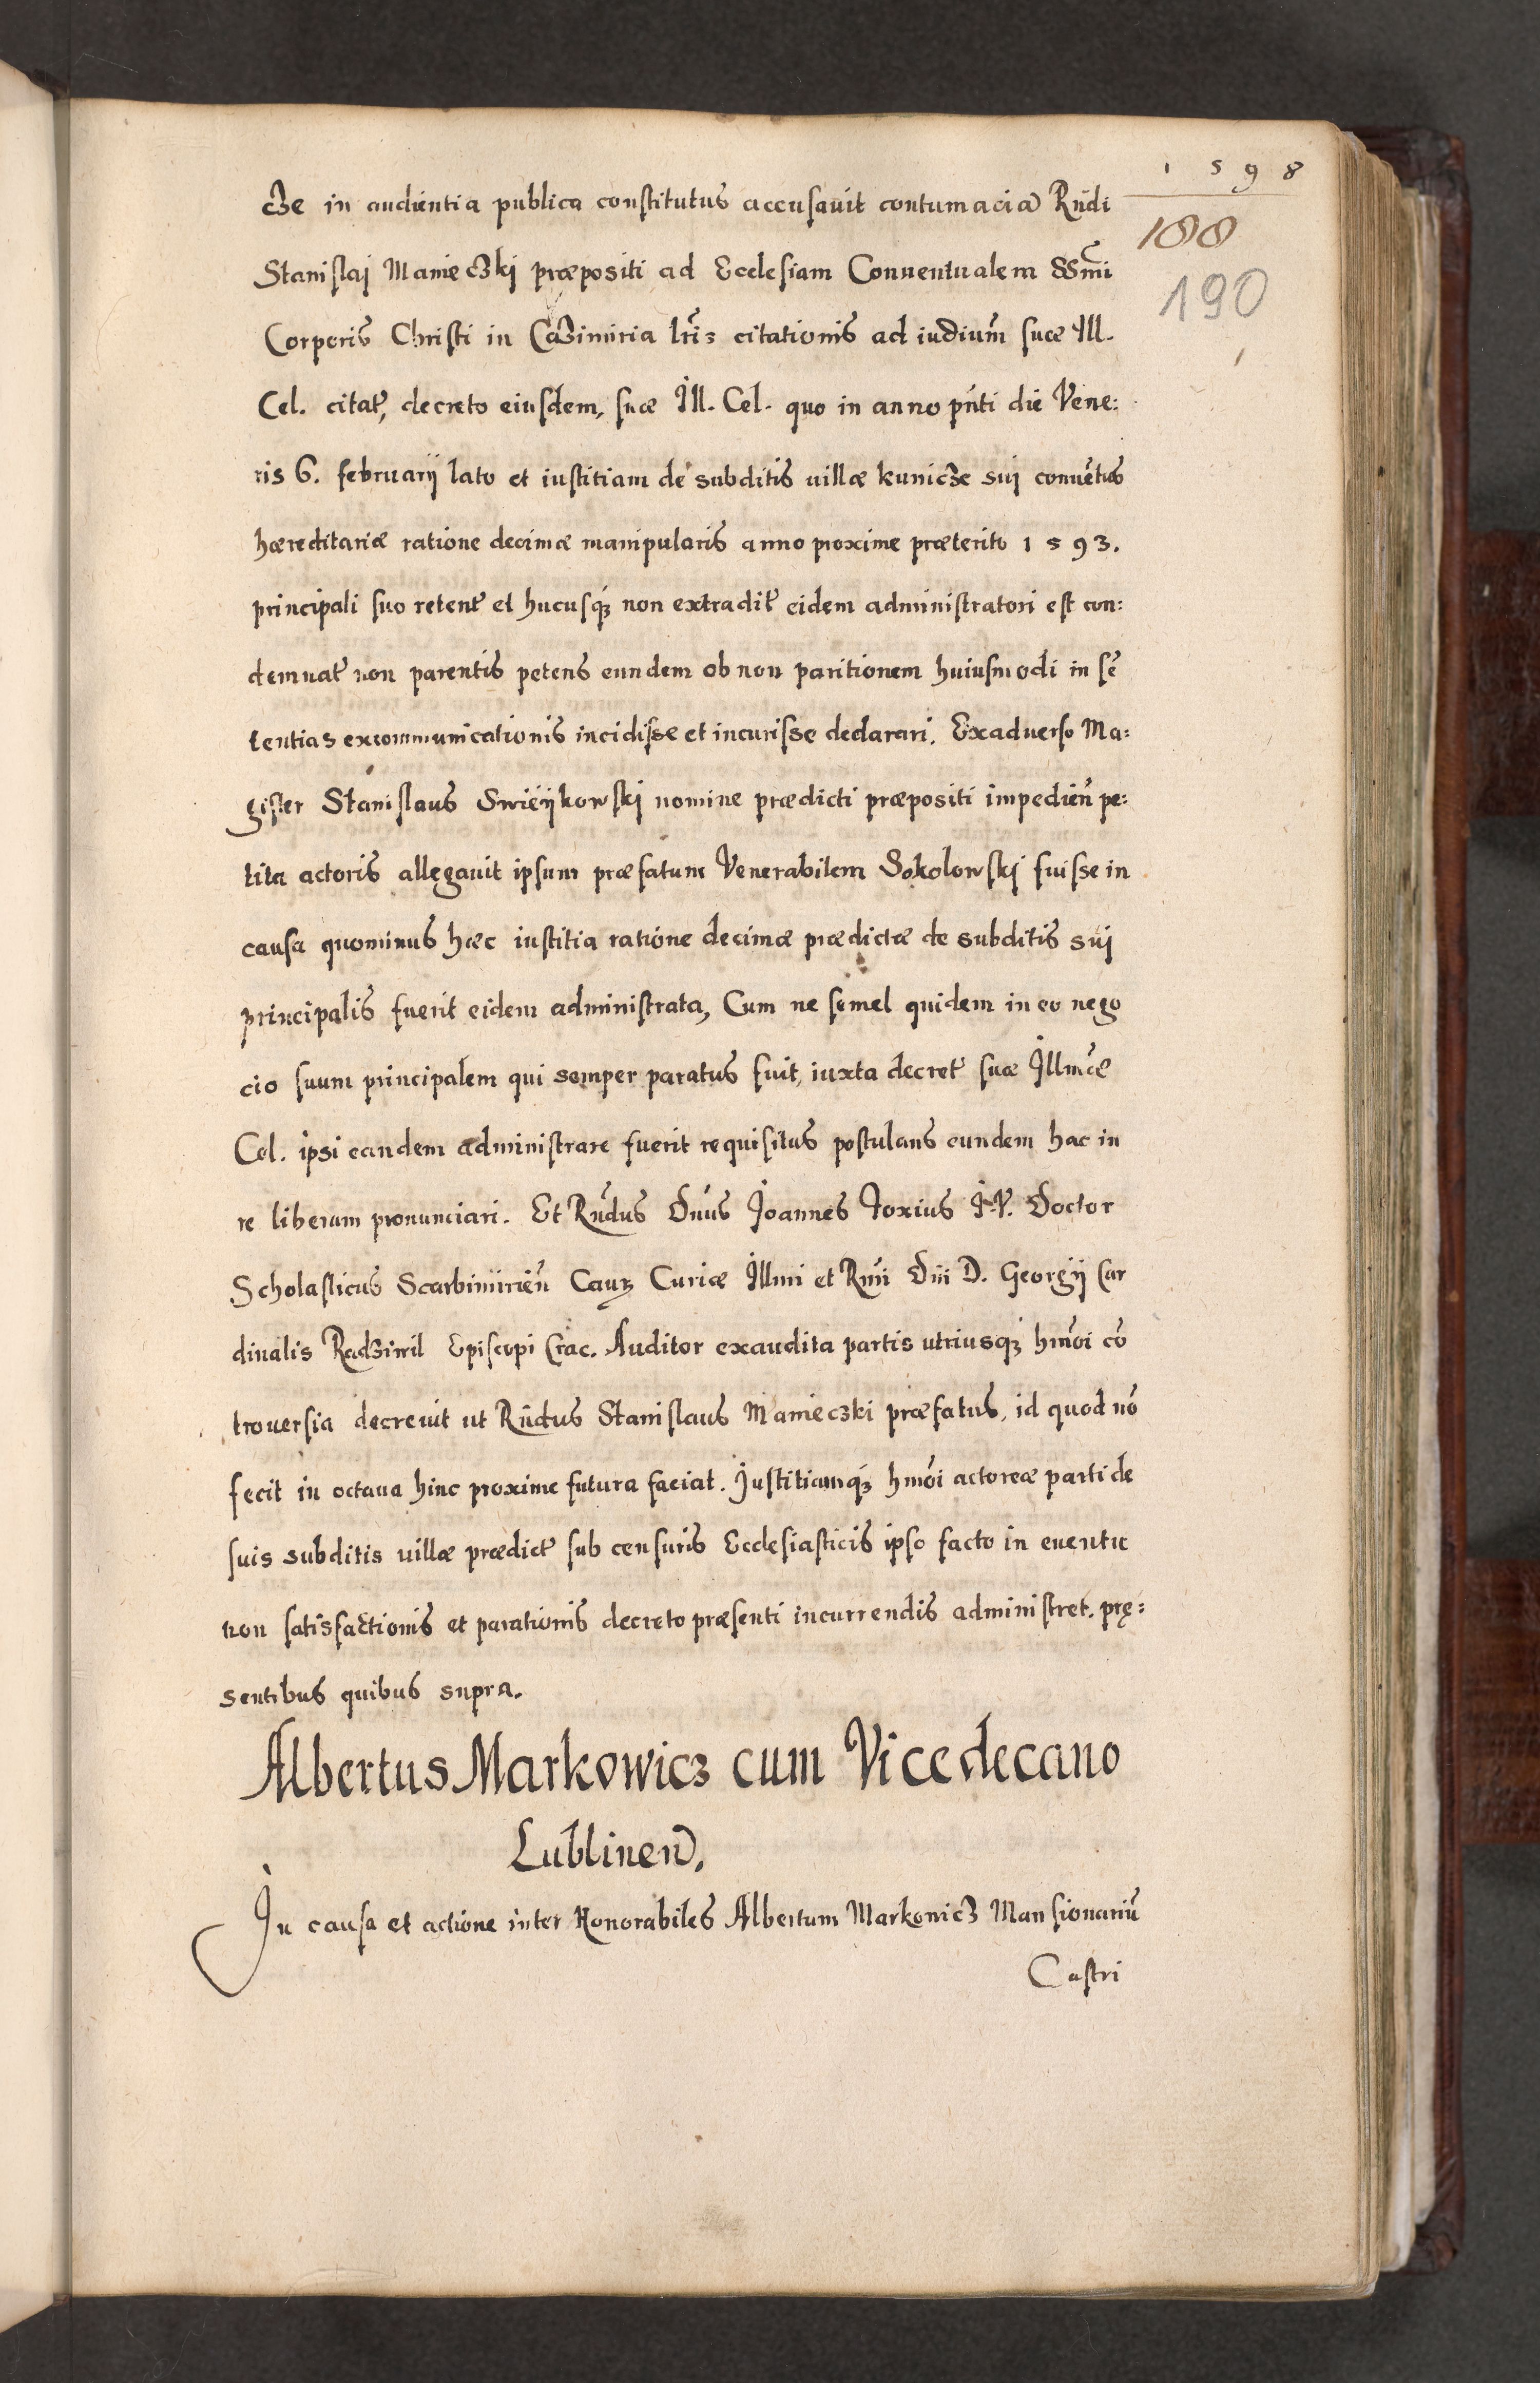 1 5 9 8
188
190
cze in audientia publica constitutus accusauit contumaciã Rñdi
Stanislaj Manieczkj præpositi ad Ecclesiam Conuentualem SSmi
Corporis Christi in Cazimiria lr̃is citationis ad iudiũm suæ Ill.
Cel. citat̃, decreto eiusdem, suæ Ill. Cel. quo in anno pñti die Vene:
ris 6. februarij lato et iustitiam de subditis uillæ kunicze suj conuẽtus
hæreditariæ ratione decimæ manipularis anno proxime præterito 1593.
principali suo retent̃ et hucusq́ꝫ non extradit̃ eidem administratori est con:
demnat̃ non parentis petens eundem ob non paritionem huiusmodi in sẽ
tentias excommunicationis incidisse et incurisse declarari. Exaduerso Ma:
gister Stanislaus Swieÿkowskj nomine prædicti præpositi impedieñ pe:
tita actoris allegauit ipsum præfatum Venerabilem Sokolowskj fuisse in
causa quominus hæc iustitia ratione decimæ prædictæ de subditis suj
principalis fuerit eidem administrata, Cum ne semel quidem in eo nego
cio suum principalem qui semper paratus fuit, iuxta decret̃ suæ Illmæ̃
Cel. ipsi eandem administrare fuerit requisitus postulans eundem hac in
re liberum pronunciari. Et Rñdus Dñus Joannes Foxius J.V. Doctor
Scholasticus Scarbimirieñ Cauꝫ Curiæ Illmi et Rmĩ Dñi D. Georgij Car
dinalis Radziwil Episcopi Crac. Auditor exaudita partis utriusqꝫ hmõi cõ
trouersia decreuit ut Rñdus Stanislaus Manieczki præfatus, id quod nõ
fecit in octaua hinc proxime futura faciat. Justitiamq́ꝫ hmõi actoreæ parti de
suis subditis uillæ prædict̃ sub censuris Ecclesiasticis ipso facto in euentu
non satisfactionis et parationis decreto præsenti incurrendis administret. prę:
sentibus quibus supra.
Albertus Markowicz cum Vicedecano
Lublineñ,
In causa et actione inter Honorabiles Albertum Markowicz Mansionariũ
Castri